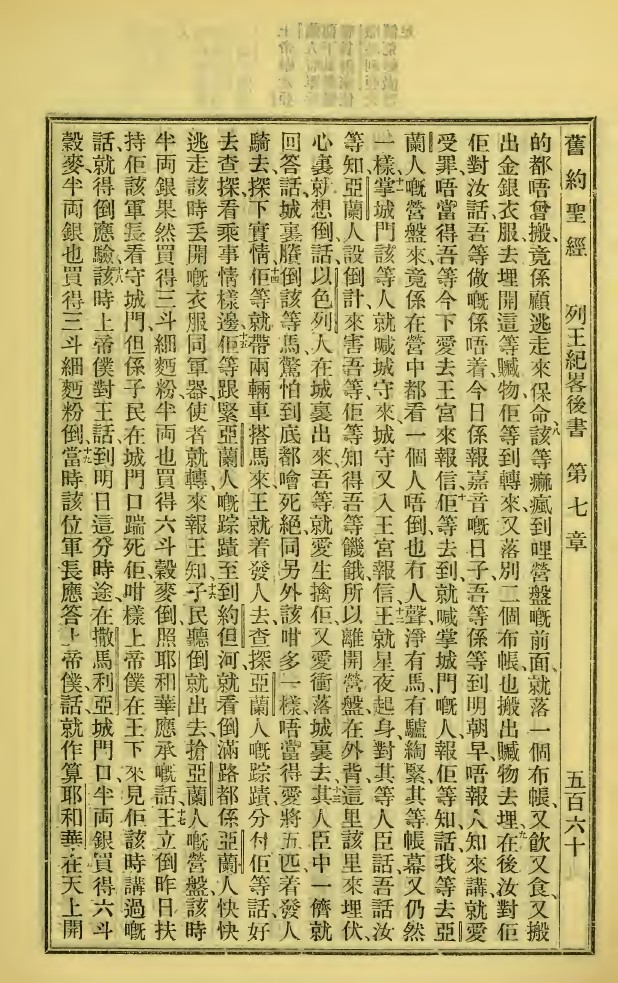 舊約聖經 列王紀畧後書 第七章 五百六十
的都唔曾搬、竟係顧逃走來保命、八該等痲瘋到哩營盤嘅前面、就落一個布帳、又飲又食、又搬
出金銀衣服去埋開這等贓物、佢等到轉來又落別二個布帳、也搬出贓物去埋、九在後汝對佢
佢對汝話、吾等做嘅係唔着、今日係報嘉音嘅日子、吾等係等到明朝早唔報人知來講、就愛
受罪、唔當得吾等今下愛去王宮來報信、十佢等去到就喊掌城門嘅人報佢等知話、我等去亞
蘭人嘅營盤來、竟係在營中都看一個人唔倒、也冇人聲、淨有馬有驢綯緊、其等帳幕又仍然
一樣、十一掌城門該等人就喊城守來、城守又入王宮報信、十二王就星夜起身、對其等人臣話、吾話汝
等知、亞蘭人設倒計來害吾等、佢等知得吾等饑餓、所以離開營盤、在外背這里該里來埋伏、
心裏就想倒話、以色列人在城裏出來、吾等就愛生擒佢、又愛衝落城裏去、十三其人臣中一儕就
回答話、城裏賸倒該等馬驚怕到底都噲死絕、同另外該咁多一樣、唔當得愛將五匹着發人
騎去、探下實情、十四佢等就帶兩輛車搭馬來、王就着發人去查探亞蘭人嘅踪蹟、分付佢等話、好
去查探看乘事情樣邊、十五佢等跟緊亞蘭人嘅踪蹟至到約但河、就看倒滿路都係亞蘭人快快
逃走該時丟開嘅衣服同軍器、使者就轉來報王知、十六子民聽倒就出去搶亞蘭人嘅營盤、該時
半両銀果然買得三斗細麪粉、半両也買得六斗穀麥倒、照耶和華應承嘅話、十七王立倒昨日扶
持佢該軍長看守城門、但係子民在城門口踹死佢、咁樣上帝僕在王下來見佢該時講過嘅
話、就得倒應驗、十八該時上帝僕對王話、到明日這分時途在撒馬利亞城門口、半両銀買得六斗
穀麥、半両銀也買得三斗細麪粉倒、十九當時該位軍長應答上帝僕話、就作算耶和華在天上開